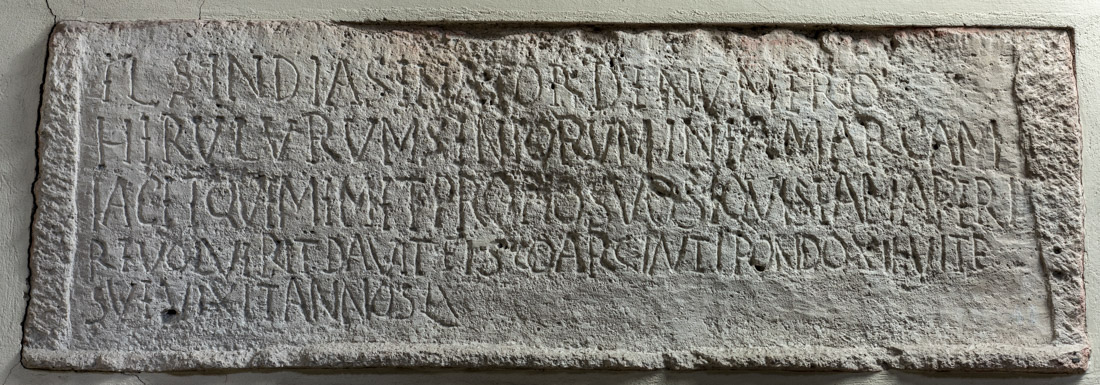 FL SINDIA DE NVMERO
HERVLORVM SENIORVM IN EAM ARCAM
IACET QVEM EMET PROPIO SVO SI QVIS EAM APERI
RE VOLVERIT DAVIT FISCO ARGENTI PONDO VITE
SVE VIXIT ANNOS